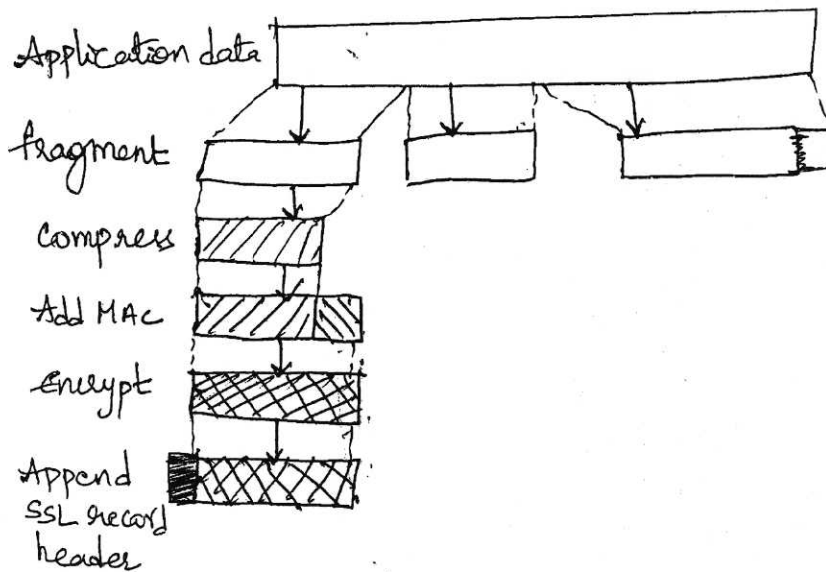 Application data
fragment
Compress
Add MAC
Encrypt
Append
SSL record
header